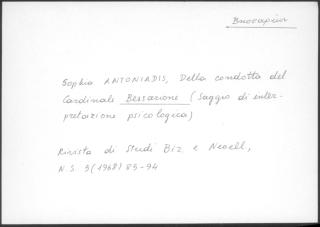 Βησσαρίων
Sophia ANTONIADIS, Della condotta del
Cardinale Bessarione (Saggio di inter-
pretazione psicologica)
Rivista di Studi Biz. e Neoell.,
N.S. 5 (1968) 85-94